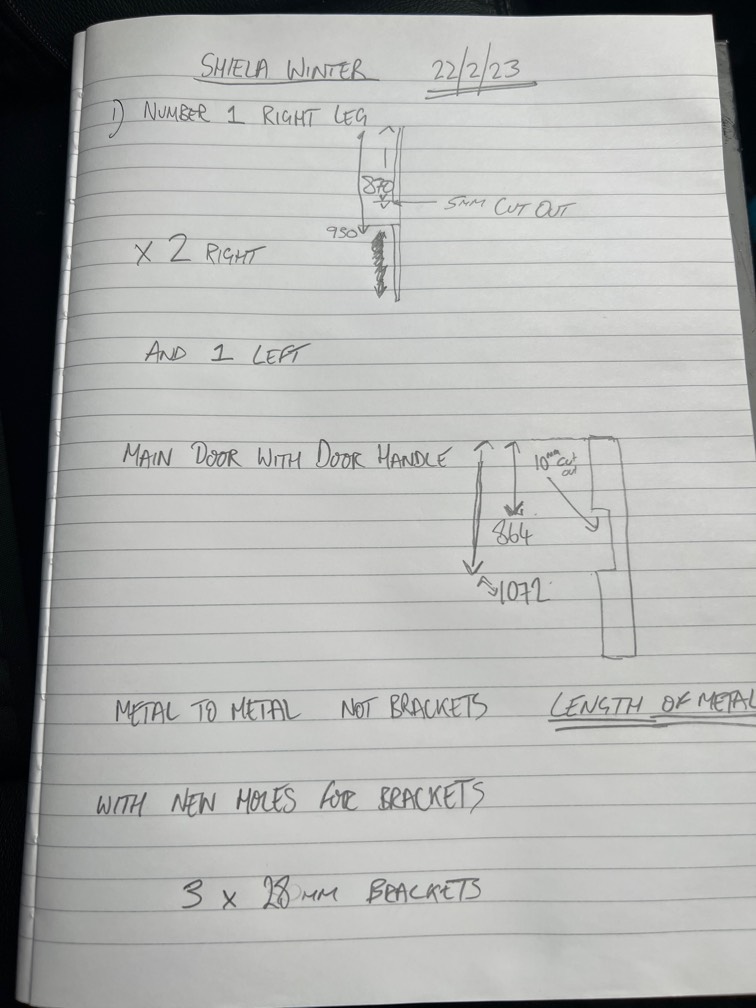 SHIELA WINTER 22/2/23
1) NUMBER 1 RIGHT LEG
870
5MM CUT OUT
950
X 2 RIGHT
AND 1 LEFT
MAIN DOOR WITH DOOR HANDLE
10mm cut
out
864
1072
METAL TO METAL NOT BRACKETS LENGTH OF METAL
WITH NEW HOLES FOR BRACKETS
3 x 28MM BRACKETS